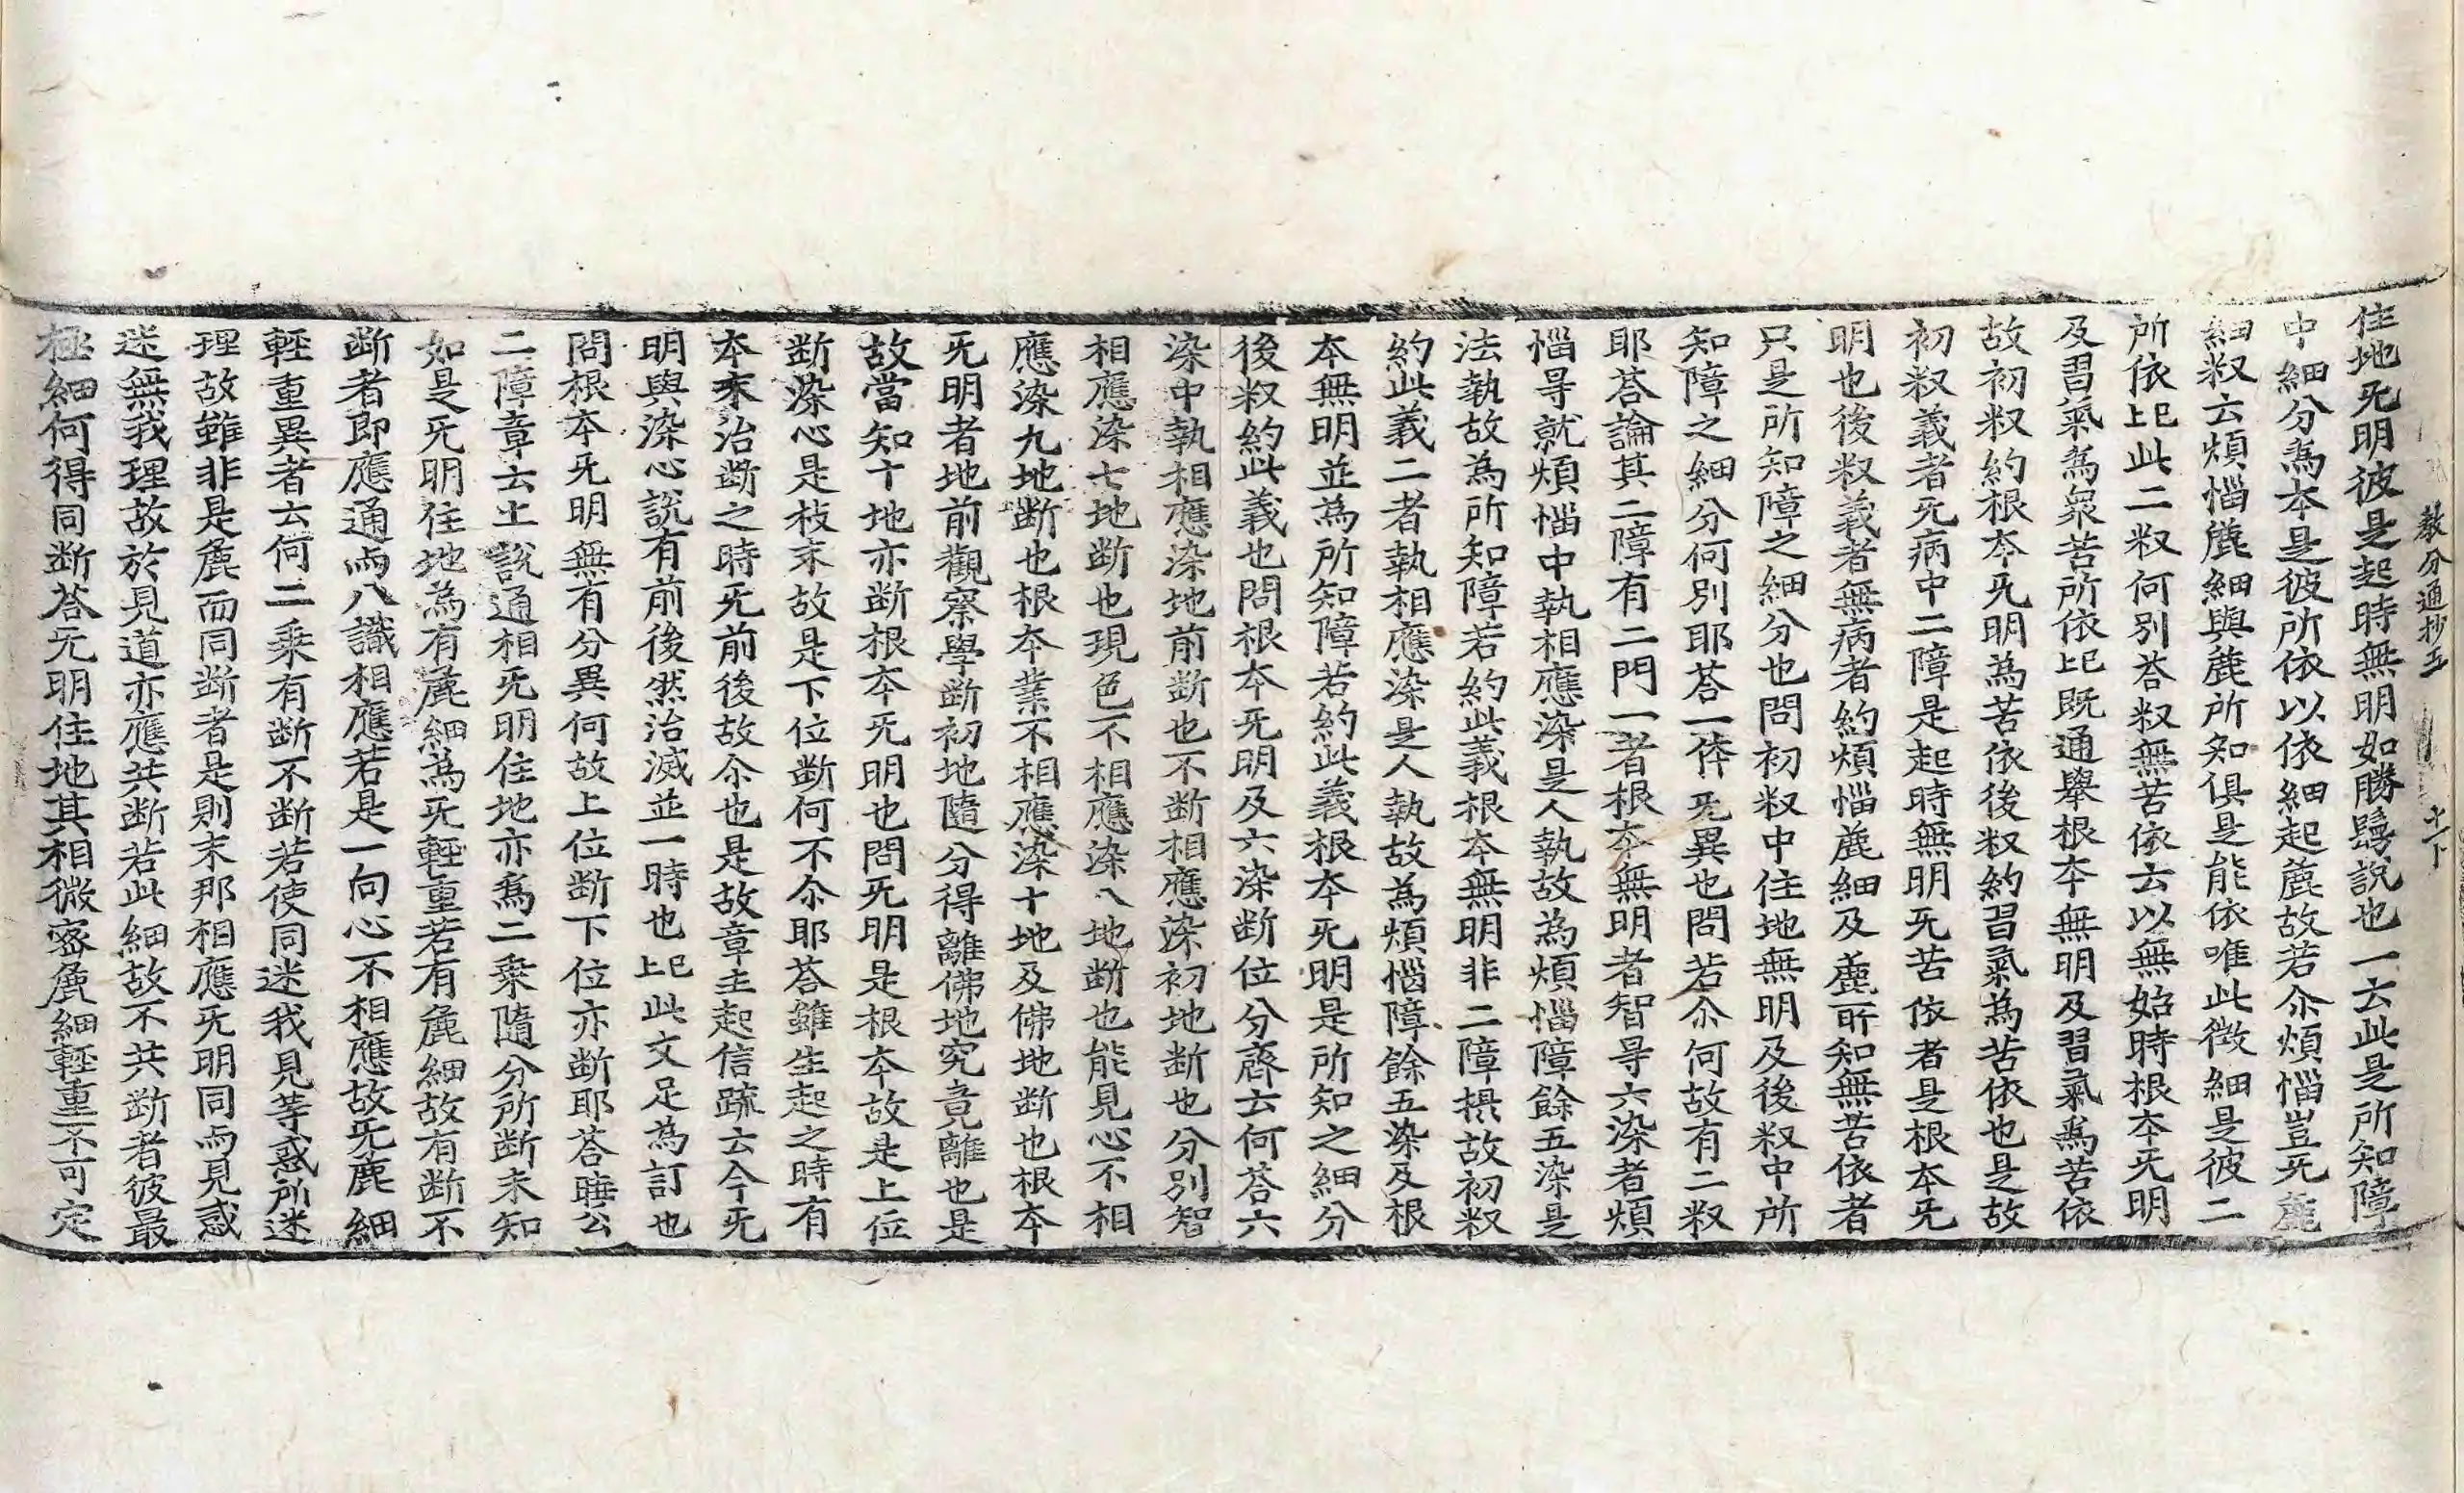 教分通抄五 十一下
住地旡明彼是起時無明如勝鬘說也一云此是所知障
中細分爲本是彼所依以依細起麁故若尒煩惱豈旡麁
細䊵云煩惱麁細與麁所知俱是能依唯此微細是彼二
所依上已此二䊵何別荅䊵無苦依云以無始時根夲旡明
及習氣爲衆苦所依上已既通舉根夲無明及習氣爲苦依
故初䊵約根夲旡明為苦依後䊵約習氣為苦依也是故
初䊵義者旡病中二障是起時無明旡苦依者是根夲旡
明也後䊵義者無病者約煩惱麁細及麁所知無苦依者
只是所知障之細分也問初䊵中住地無明及後䊵中所
知障之細分何別耶荅一体旡異也問若尒何故有二䊵
耶荅論其二障有二門一者根夲無明者智㝵六染者煩
惱㝵就煩惱中執相應染是人執故為煩惱障餘五染是
法執故為所知障若約此義根夲無明非二障摂故初䊵
約此義二者執相應染是人執故為煩惱障餘五染及根
夲無明並為所知障若約此義根夲旡明是所知之細分
後䊵約此義也問根夲旡明及六染断位分齊云何荅六
染中執相應染地前断也不断相應染初地断也分別智
相應染七地断也現色不相應染八地断也能見心不相
應染九地断也根夲業不相應染十地及佛地断也根夲
旡明者地前觀察學断初地隨分得離佛地究竟離也是
故當知十地亦断根夲旡明也問旡明是根夲故是上位
断染心是枝末故是下位断何不尒耶荅雖生起之時有
夲末治断之時旡前後故尒也是故章主起信䟽云今旡
明與染心說有前後然治滅並一時也上已此文足為訂也
問根夲旡明無有分異何故上位断下位亦断耶荅曉公
二障章云上說通相旡明住地亦爲二乘隨分所断未知
如是旡明住地為有麁細為旡輕重若有麁細故有断不
断者即應通而八識相應若是一向心不相應故旡麁細
輕重異者云何二乘有断不断若使同迷我見等惑所迷
理故雖非是麁而同断者是則末那相應旡明同而見惑
迷無我理故於見道亦應共断若此細故不共断者彼最
極細何得同断荅旡明住地其相微密麁細輕重不可定